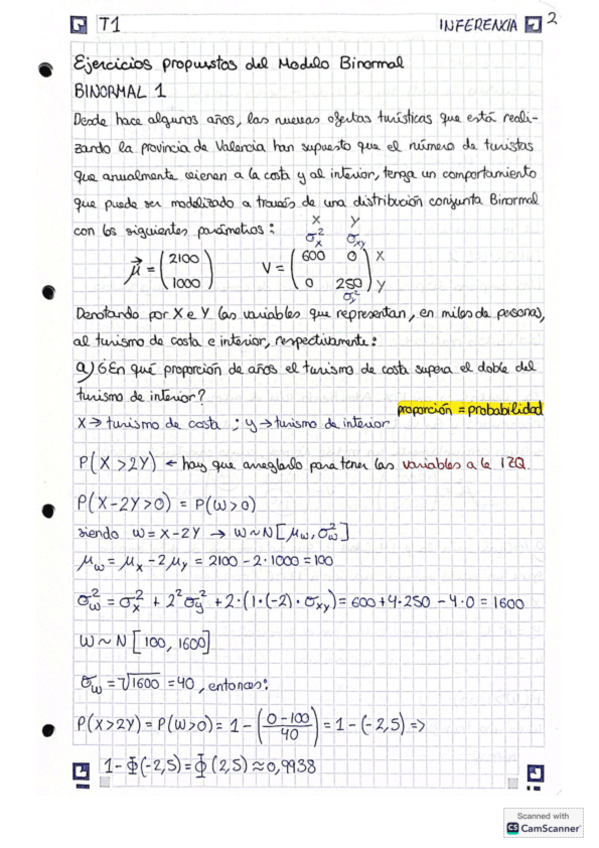 T1 INFERENCIA 2
Ejercicios propuestos del Modelo Binormal
BINORMAL 1
Desde hace algunos años, las nuevas ofertas turísticas que está reali-
zando la provincia de Valencia han supuesto que el número de turistas
que anualmente vienen a la costa y al interior, tenga un comportamiento
que puede ser modelizado a través de una distribución conjunta Binormal
con los siguientes parámetros:
X Y
σ²x σxy
μ⃗ = (2100 1000) V = (600 0 0 250) X Y
σ²y
Denotando por X e Y las variables que representan, en miles de personas,
al turismo de costa e interior, respectivamente:
a) ¿En qué proporción de años el turismo de costa supera el doble del
turismo de interior?
proporción = probabilidad
X → turismo de costa ; y → turismo de interior
P(X > 2Y) ← hay que arreglarlo para tener las variables a la IZQ.
P(X-2Y>0) = P(W>0)
siendo W = X-2Y → W~N[μw, σ²w]
μw = μx - 2μy = 2100 - 2·1000 = 100
σ²w = σ²x + 2²σ²y + 2·(1·(-2)·σxy) = 600 + 4·250 - 4·0 = 1600
W ~ N[100, 1600]
σw = √1600 = 40, entonces:
P(X>2Y) = P(W>0) = 1 - (0-100/40) = 1 - (-2,5) =>
1 - Φ(-2,5) = Φ(2,5) ≈ 0,9938
Scanned with
CS CamScanner